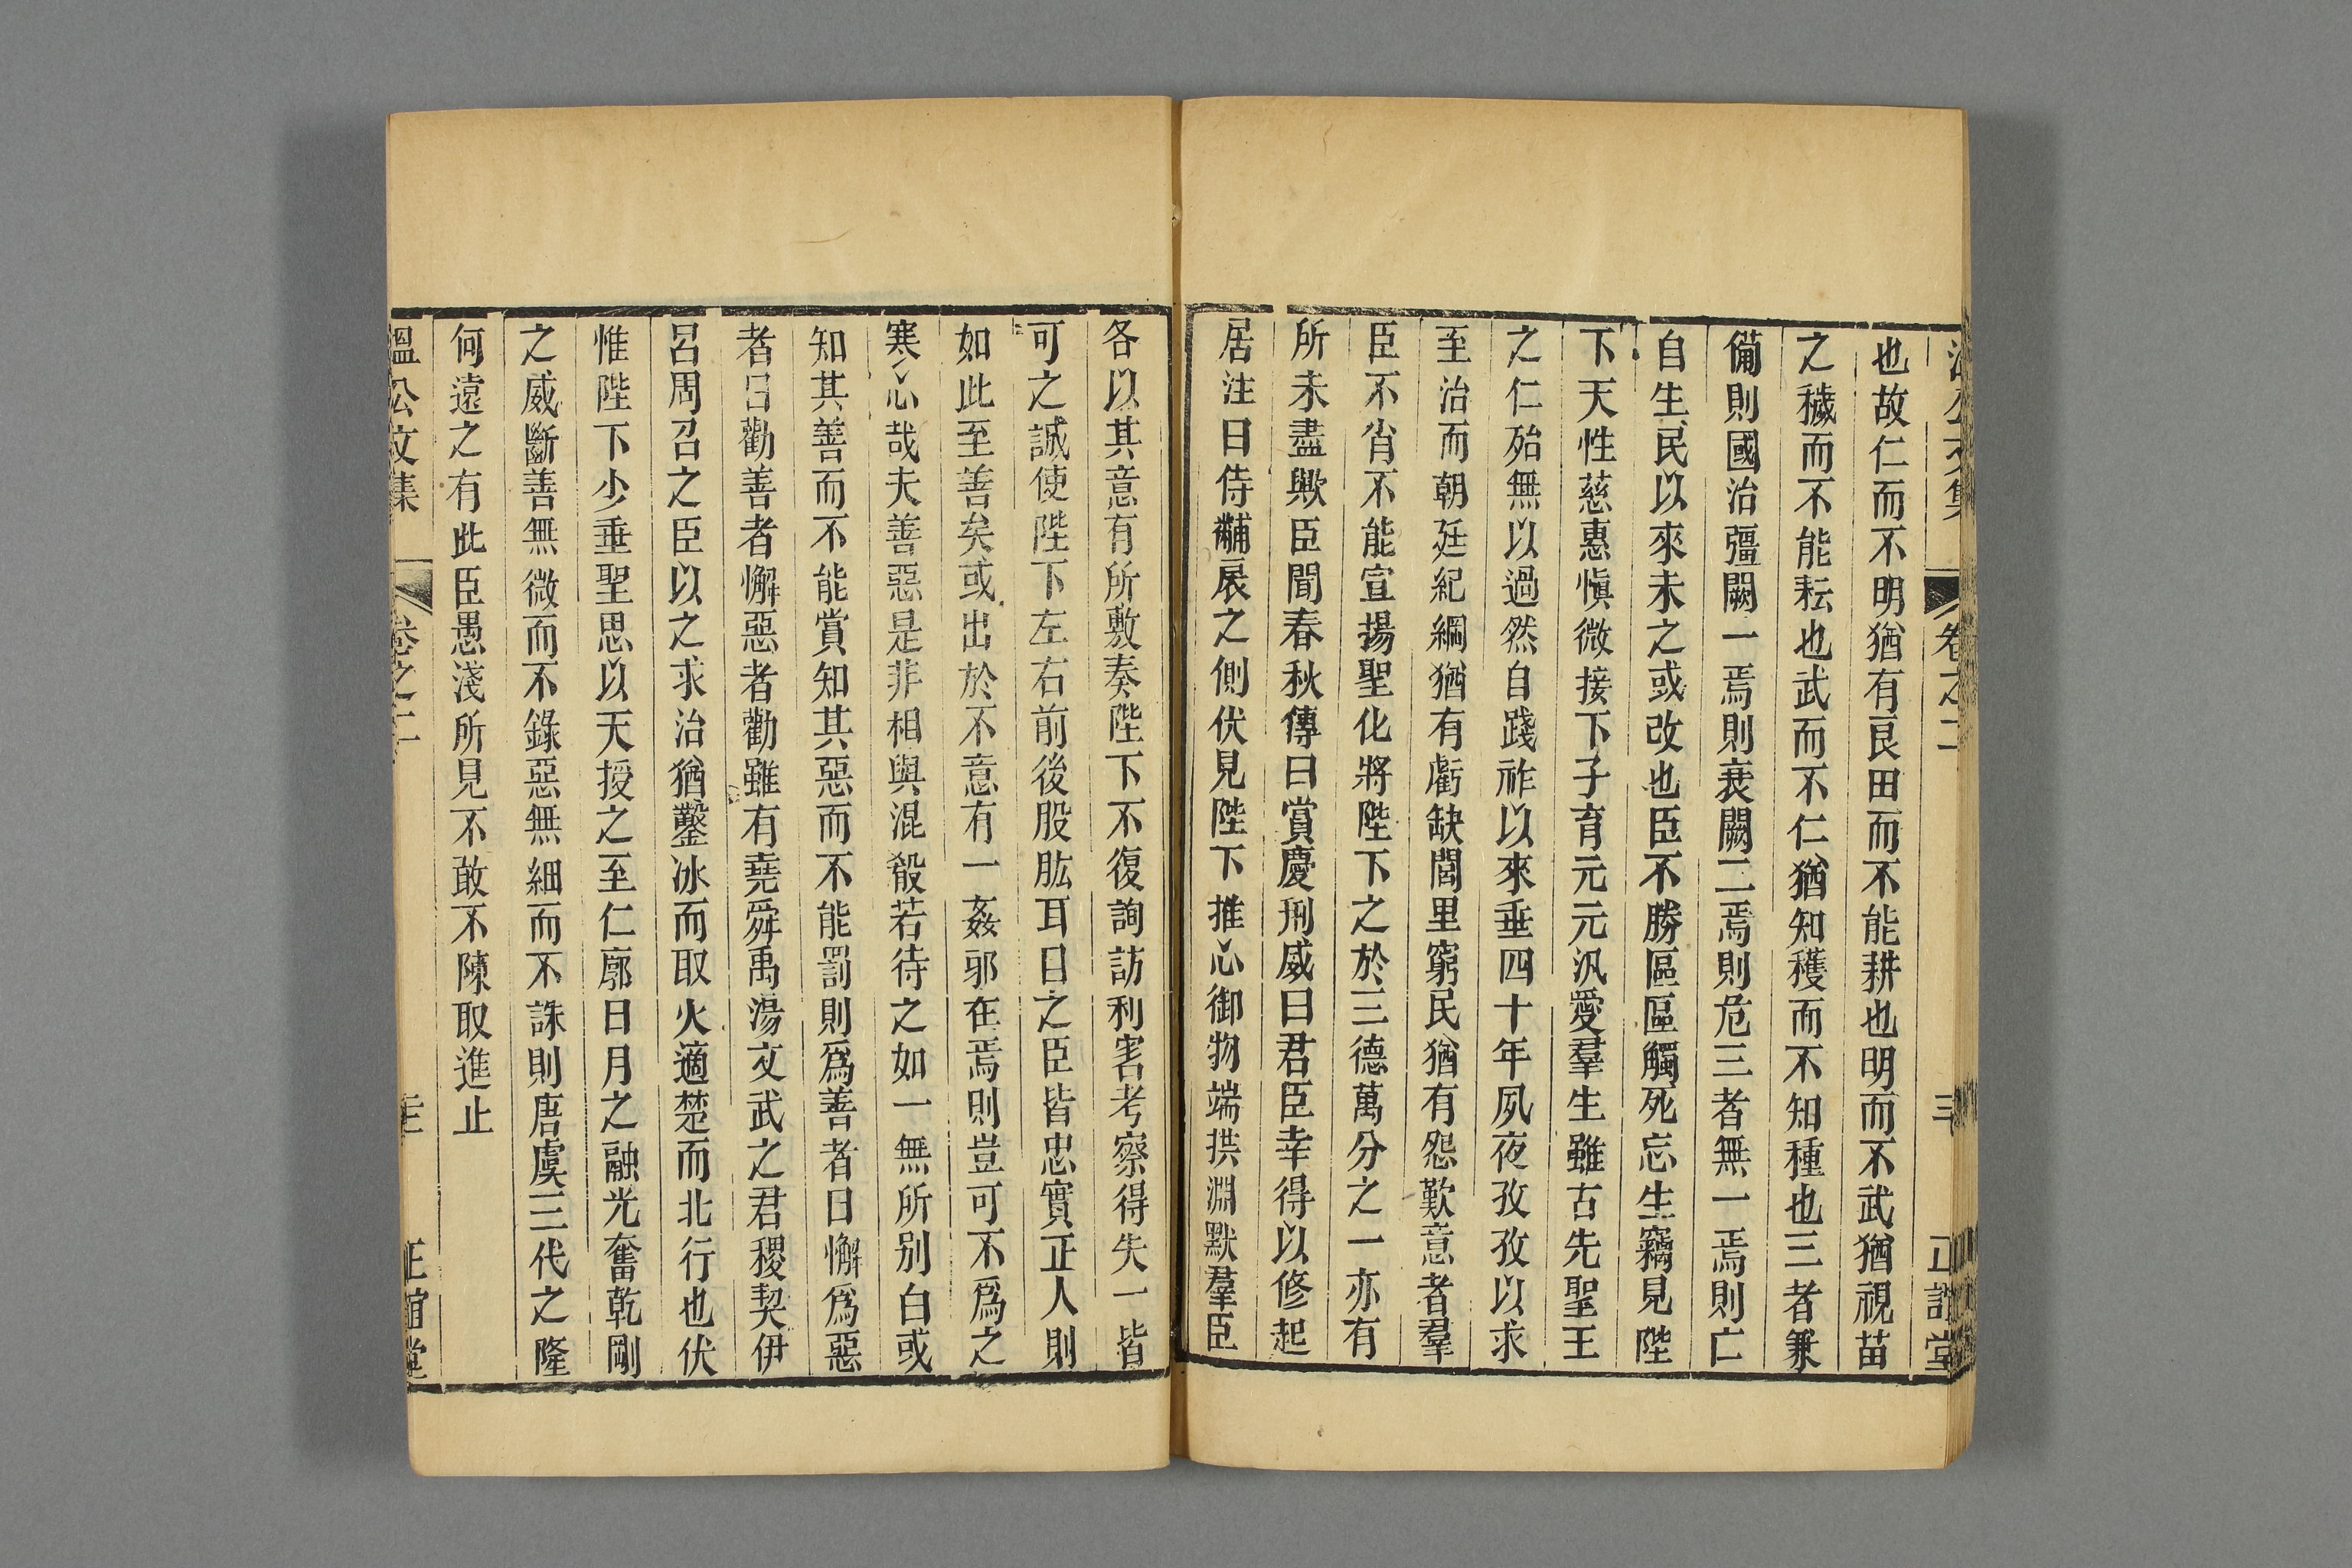 溫公文集 卷之二 三 正誼堂
也故仁而不明猶有良田而不能耕也明而不武猶視苗
之穢而不能耘也武而不仁猶知穫而不知種也三者兼
備則國治彊闕一焉則衰闕二焉則危三者無一焉則亡
自生民以來未之或改也臣不勝區區觸死忘生竊見陛
下天性慈惠愼微接下子育元元汎愛羣生雖古先聖王
之仁殆無以過然自踐祚以來垂四十年夙夜孜孜以求
至治而朝廷紀綱猶有虧缺閭里窮民猶有怨歎意者羣
臣不肖不能宣揚聖化將陛下之於三德萬分之一亦有
所未盡歟臣聞春秋傳曰賞慶刑威曰君臣幸得以修起
居注日侍黼扆之側伏見陛下推心御物端拱淵默羣臣
各以其意有所敷奏陛下不復詢訪利害考察得失一皆
可之誠使陛下左右前後股肱耳目之臣皆忠實正人則
如此至善矣或出於不意有一姦邪在焉則豈可不爲之
寒心哉夫善惡是非相與混殽若待之如一無所别白或
知其善而不能賞知其惡而不能罰則爲善者日懈爲惡
者日勸善者懈惡者勸雖有堯舜禹湯文武之君稷契伊
呂周召之臣以之求治猶鑿冰而取火適楚而北行也伏
惟陛下少垂聖思以天授之至仁廓日月之融光奮乾剛
之威斷善無微而不錄惡無細而不誅則唐虞三代之隆
何遠之有此臣愚淺所見不敢不陳取進止
溫公文集 卷之二 正誼堂